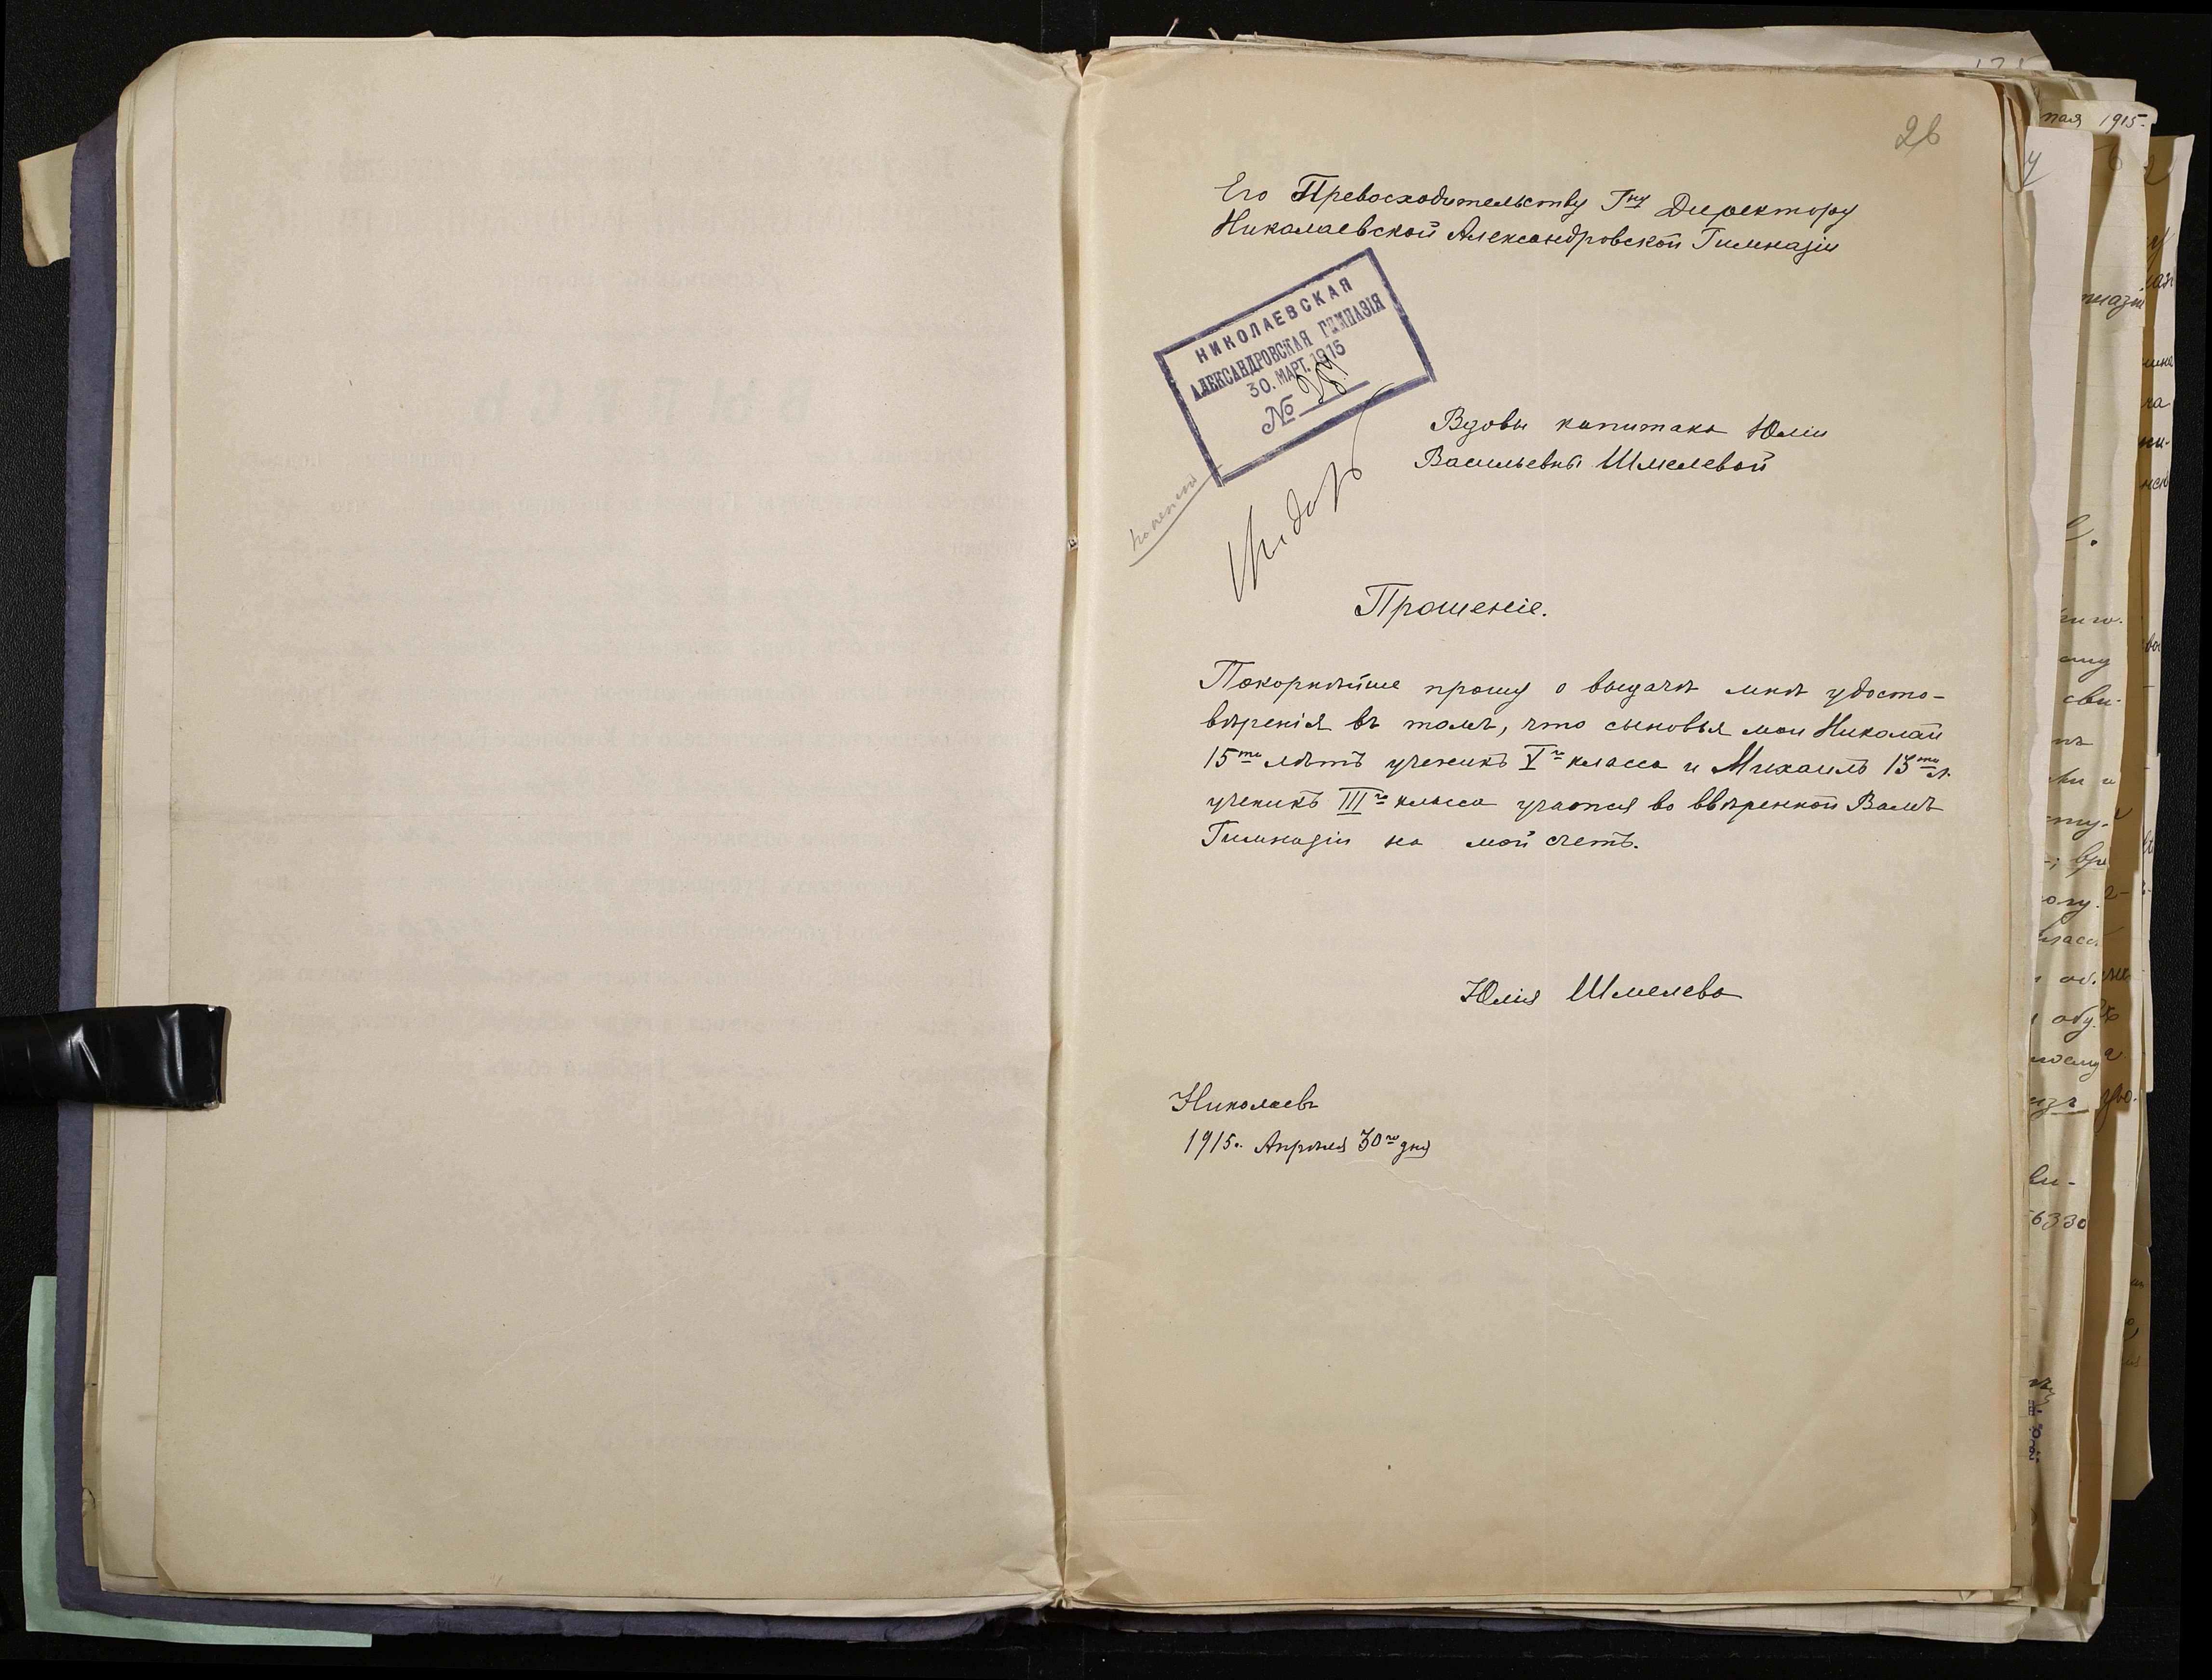 26
Его Превосходительству Гну Директору
Николаевской Александровской Гимназіи
НИКОЛАЕВСКАЯ
АЛЕКСАНДРОВСКАЯ ГИМНАЗІЯ
30. МАРТ. 1915
№
Вдовы капитана Юліи
Васильевны Шмелевой
Прошеніе.
Покорнѣйше прошу о выдачѣ мнѣ удосто-
вѣренія въ томъ, что сыновья мои Николай
15ти лѣтъ ученикъ Vго класса и Михаилъ 13ти л.
ученикъ IIIго класса учатся во ввѣренной Вамъ
Гимназіи на мой счетъ.
Юлія Шмелева
Николаевъ
1915г. Апрѣля 30го дня
мая 1915.
6330